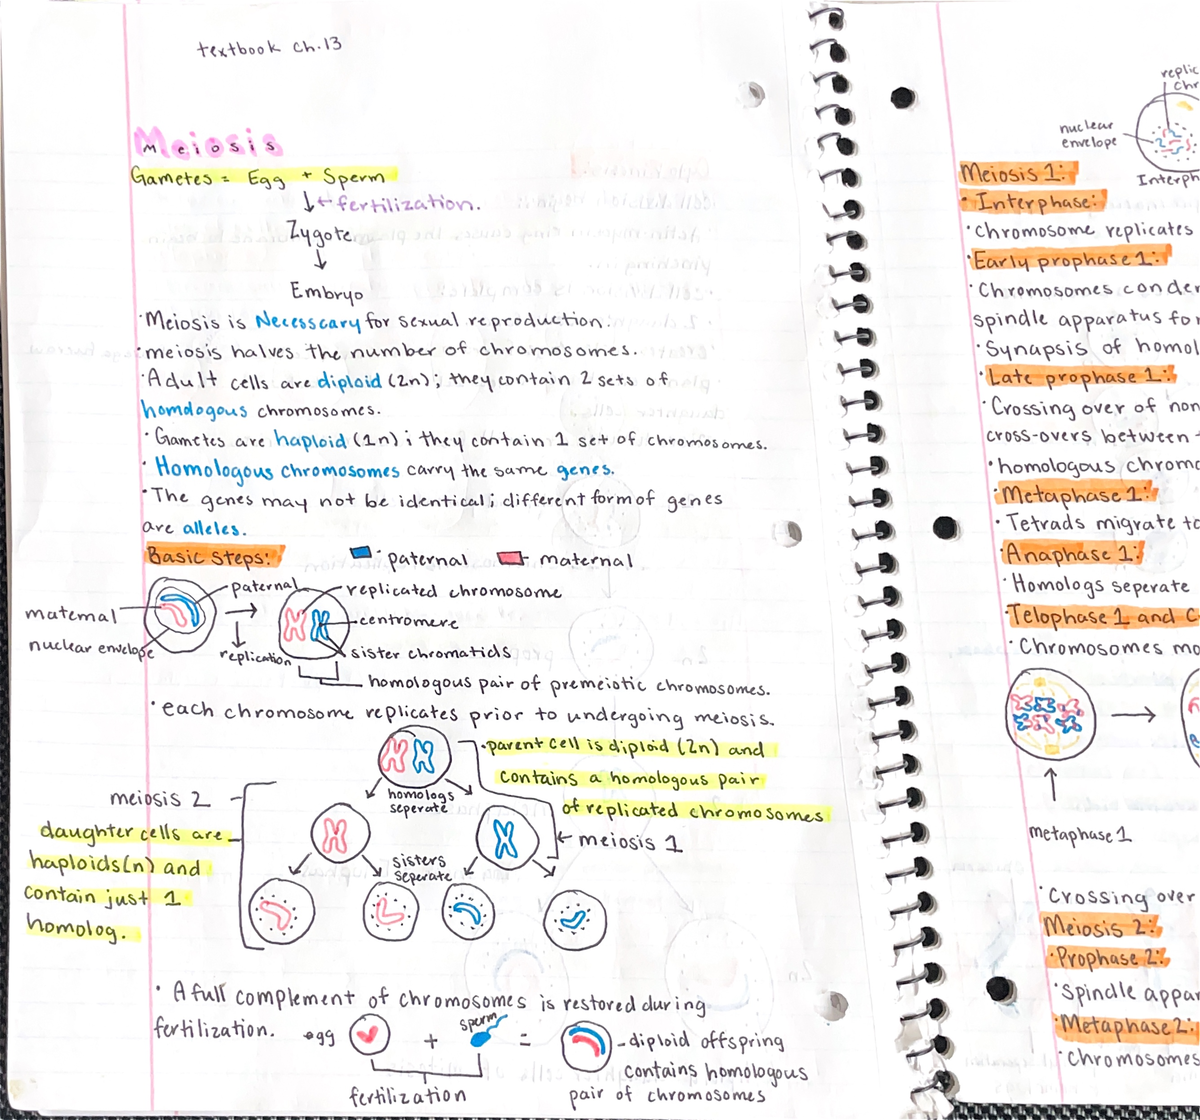 textbook ch.13
Meiosis
Gametes = Egg + Sperm
↓ ← fertilization.
Zygote
↓
Embryo
·Meiosis is Necesscary for sexual reproduction.
·meiosis halves the number of chromosomes.
·Adult cells are diploid (2n); they contain 2 sets of
homologous chromosomes.
·Gametes are haploid (1n); they contain 1 set of chromosomes.
·Homologous chromosomes carry the same genes.
·The genes may not be identical; different form of genes
are alleles.
Basic Steps: - paternal - maternal
maternal
nuclear envelope
paternal
replication
replicated chromosome
centromere
sister chromatids
homologous pair of premeiotic chromosomes.
·each chromosome replicates prior to undergoing meiosis.
·parent cell is diploid (2n) and
contains a homologous pair
of replicated chromosomes
homologs
seperate
meiosis 1
meiosis 2
daughter cells are
haploids(n) and
contain just 1
homolog.
sisters
seperate
· A full complement of chromosomes is restored during
fertilization.
egg + sperm =
fertilization
-diploid offspring
contains homologous
pair of chromosomes
replic
chr
nuclear
envelope
Interph
Meiosis 1:
· Interphase:
·Chromosome replicates
·Early prophase 1:
·Chromosomes conder
spindle apparatus for
·Synapsis of homol
·Late prophase 1:
·Crossing over of non
cross-overs between
·homologous chromo
·Metaphase 1:
·Tetrads migrate to
·Anaphase 1:
·Homologs seperate
·Telophase 1 and C
·Chromosomes mo
metaphase 1
·Crossing over
Meiosis 2:
·Prophase 2:
·spindle appar
·Metaphase 2:
·Chromosomes